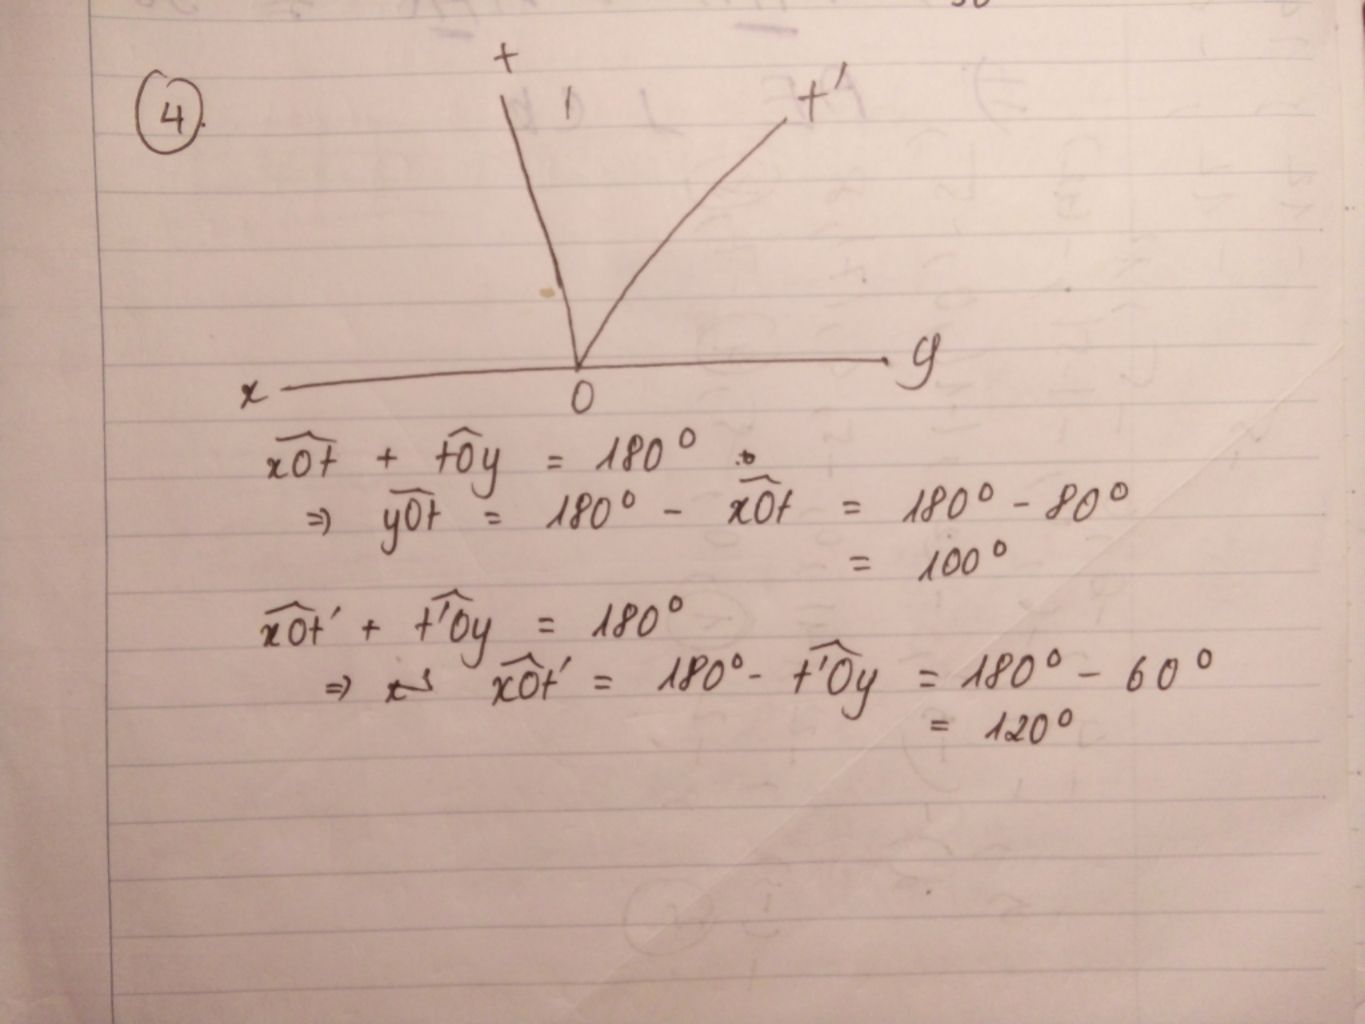 4.
t
t'
x
O
y
xOt + tOy = 180°
⇒ yOt = 180° - xOt = 180° - 80°
= 100°
xOt' + t'Oy = 180°
⇒ xOt' = 180° - t'Oy = 180° - 60°
= 120°